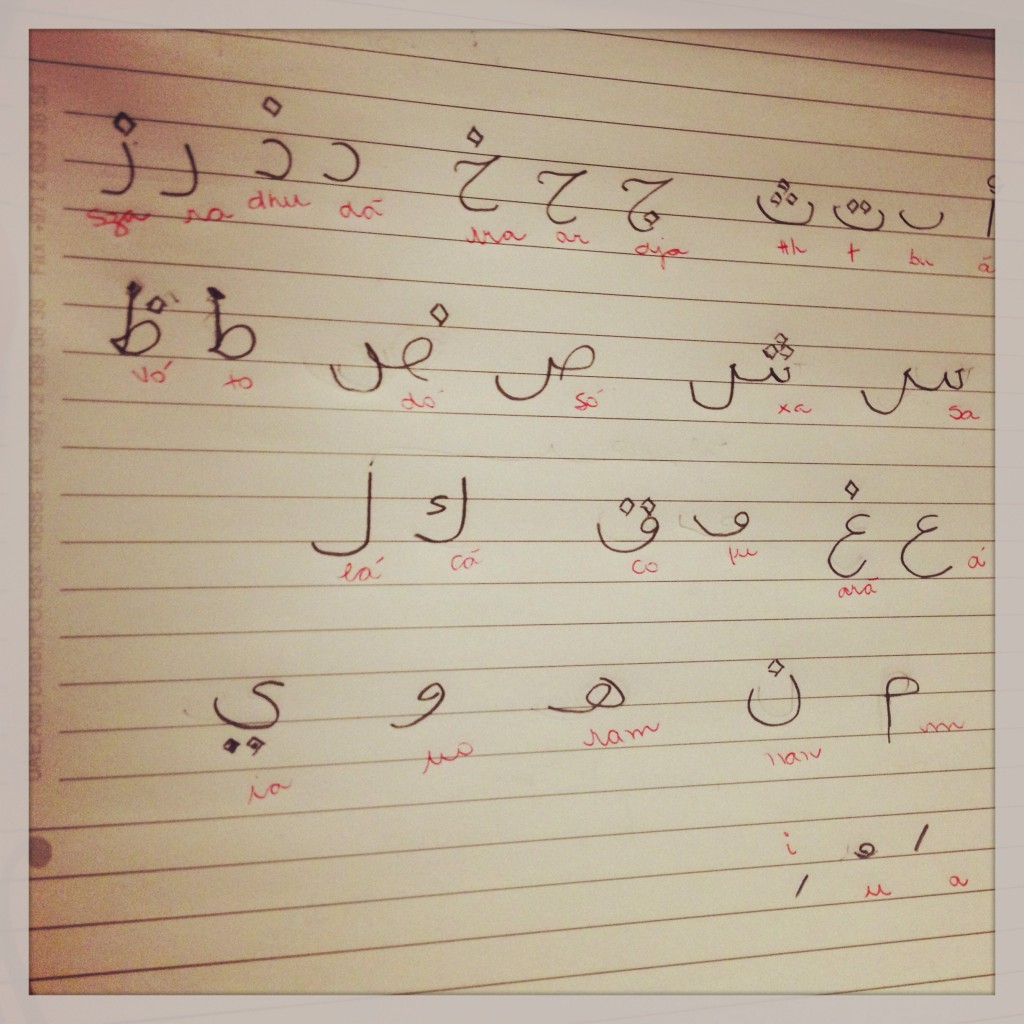 أ ب ت ث ج ح خ د ذ ر ز
á bu t th dja ar dá dhu ra
س ش ص ض ط ظ
sa xa só dó to vó
ع غ ف ق ك ل
á arã fu co cá lá
م ن ه و ي
m nan ram uo ia
َ ُ ِ
a u i